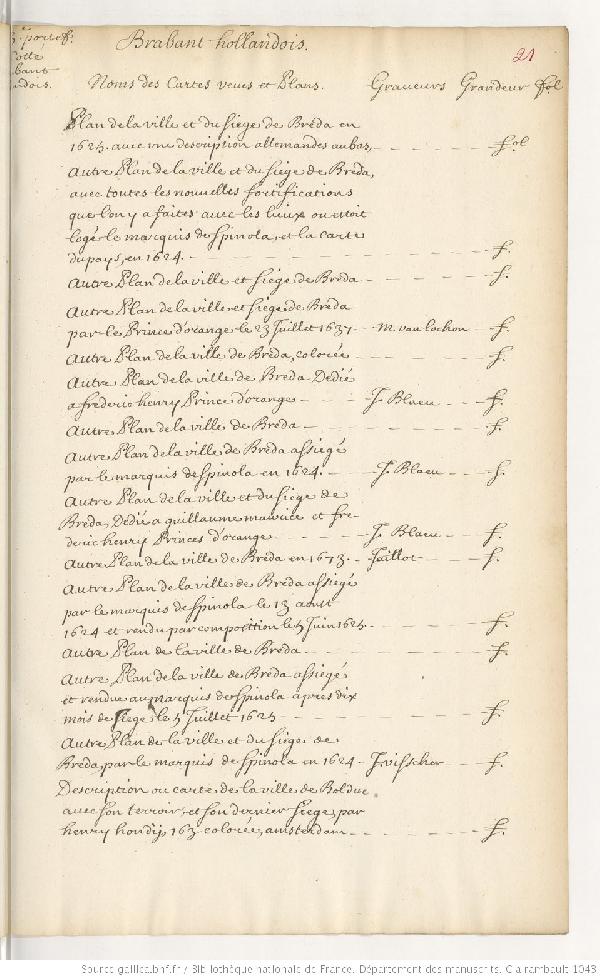 Brabant hollandois.
21
Noms des Cartes veues et Plans. Graveurs Grandeur fol
Plan de la ville et du siege de Bréda en
1625. avec une description allemandes au bas, fol
Autre Plan de la ville et du siege de Bréda,
avec toutes les nouvelles fortifications
que l'on y a faites avec les lieux ou estoit
logé le marquis de Spinola, et la carte
du pays, en 1624. f.
Autre Plan de la ville et siege de Bréda f.
Autre Plan de la ville et siege de Bréda
par le Prince d'orange le 23 Juillet 1637 M. van lochon f.
Autre Plan de la ville de Bréda, colorée f.
Autre Plan de la ville de Bréda Dedié
a frederic henry Prince d'orange J. Blaeu f.
Autre Plan de la ville de Bréda f.
Autre Plan de la ville de Bréda assiegé
par le marquis de Spinola en 1624. J. Blaeu f.
Autre Plan de la ville et du siege de
Bréda, Dedié a guillaume maurice et fre-
deric henry Princes d'orange J. Blaeu f.
Autre Plan de la ville de Bréda en 1673. Jaillot f.
Autre Plan de la ville de Bréda assiegé
par le marquis de Spinola le 13 aoust
1624 et rendu par composition le 5 Juin 1625. f.
Autre Plan de la ville de Bréda f.
Autre Plan de la ville de Bréda assiegé
et rendue au marquis de Spinola apres dix
mois de siege, le 5 Juillet 1625 f.
Autre Plan de la ville et du siege de
Bréda, par le marquis de Spinola en 1624 J. visscher f.
Description ou carte de la ville de Bolduc
avec son terroir, et son dernier siege, par
henry hondij, 163. colorée, amsterdam f.
Source gallica.bnf.fr / Bibliothèque nationale de France. Département des manuscrits. Clairambault 1043